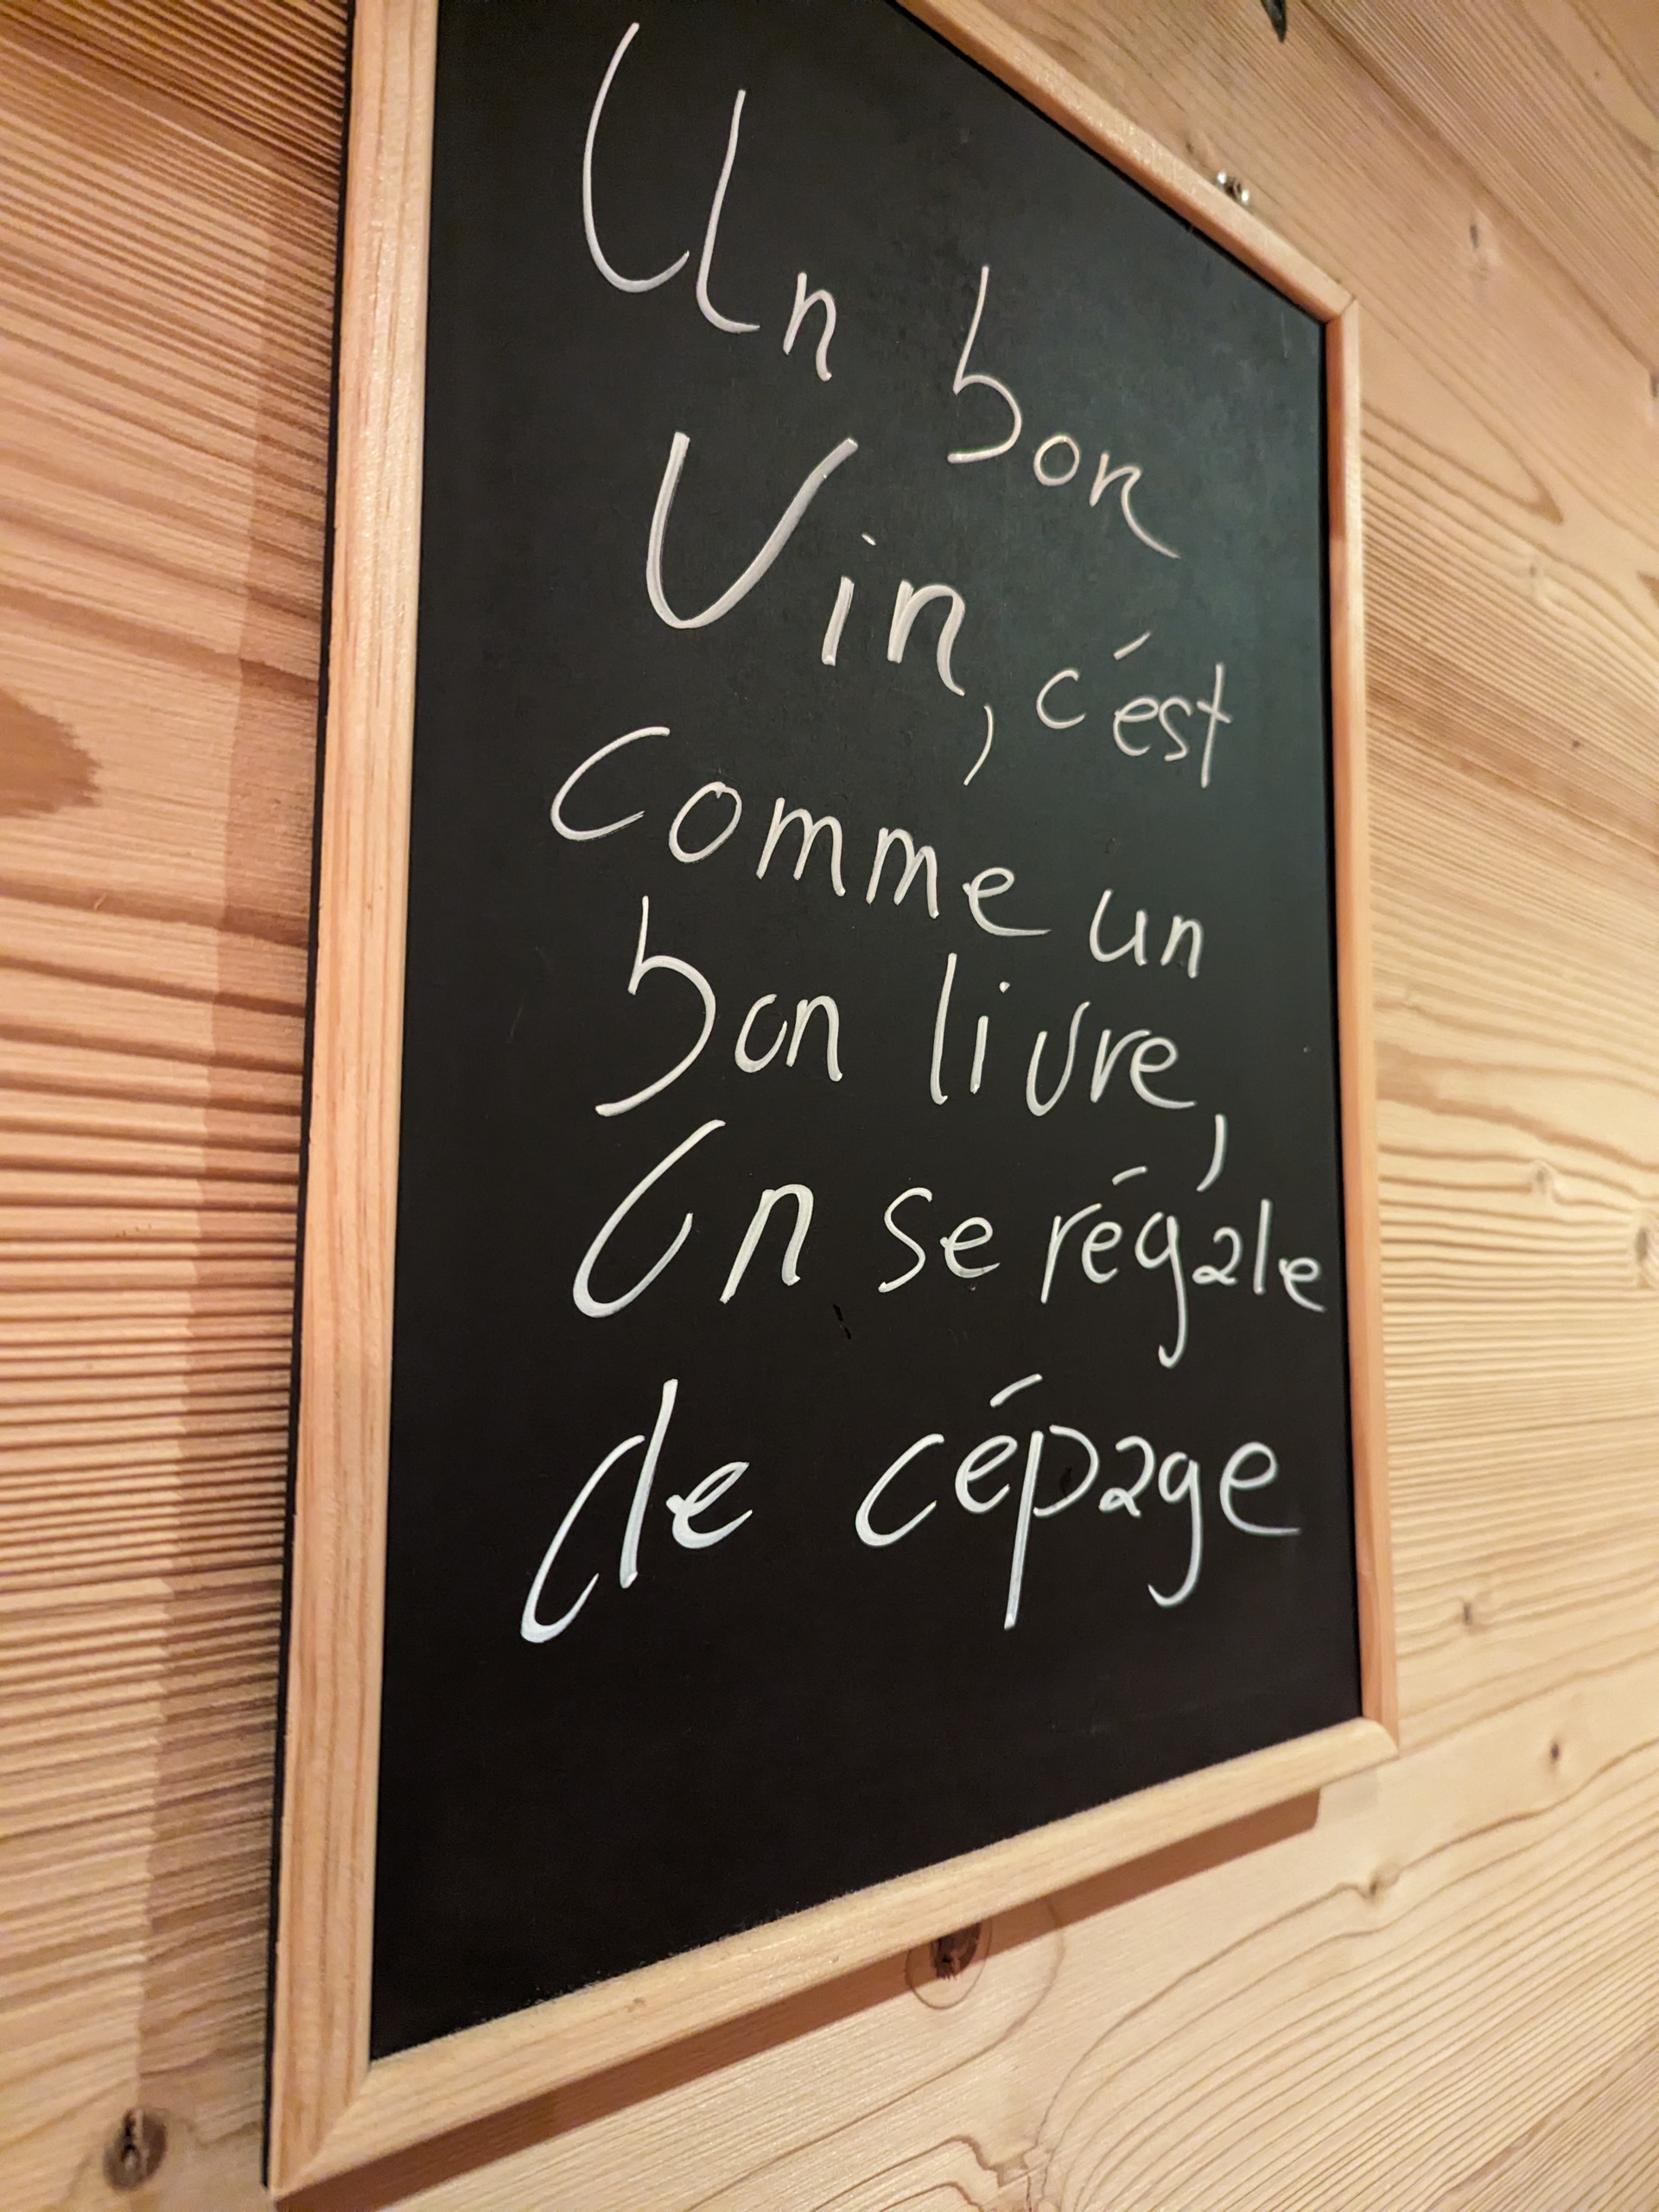 Un bon
Vin, c'est
comme un
bon livre,
On se régale
de cépage